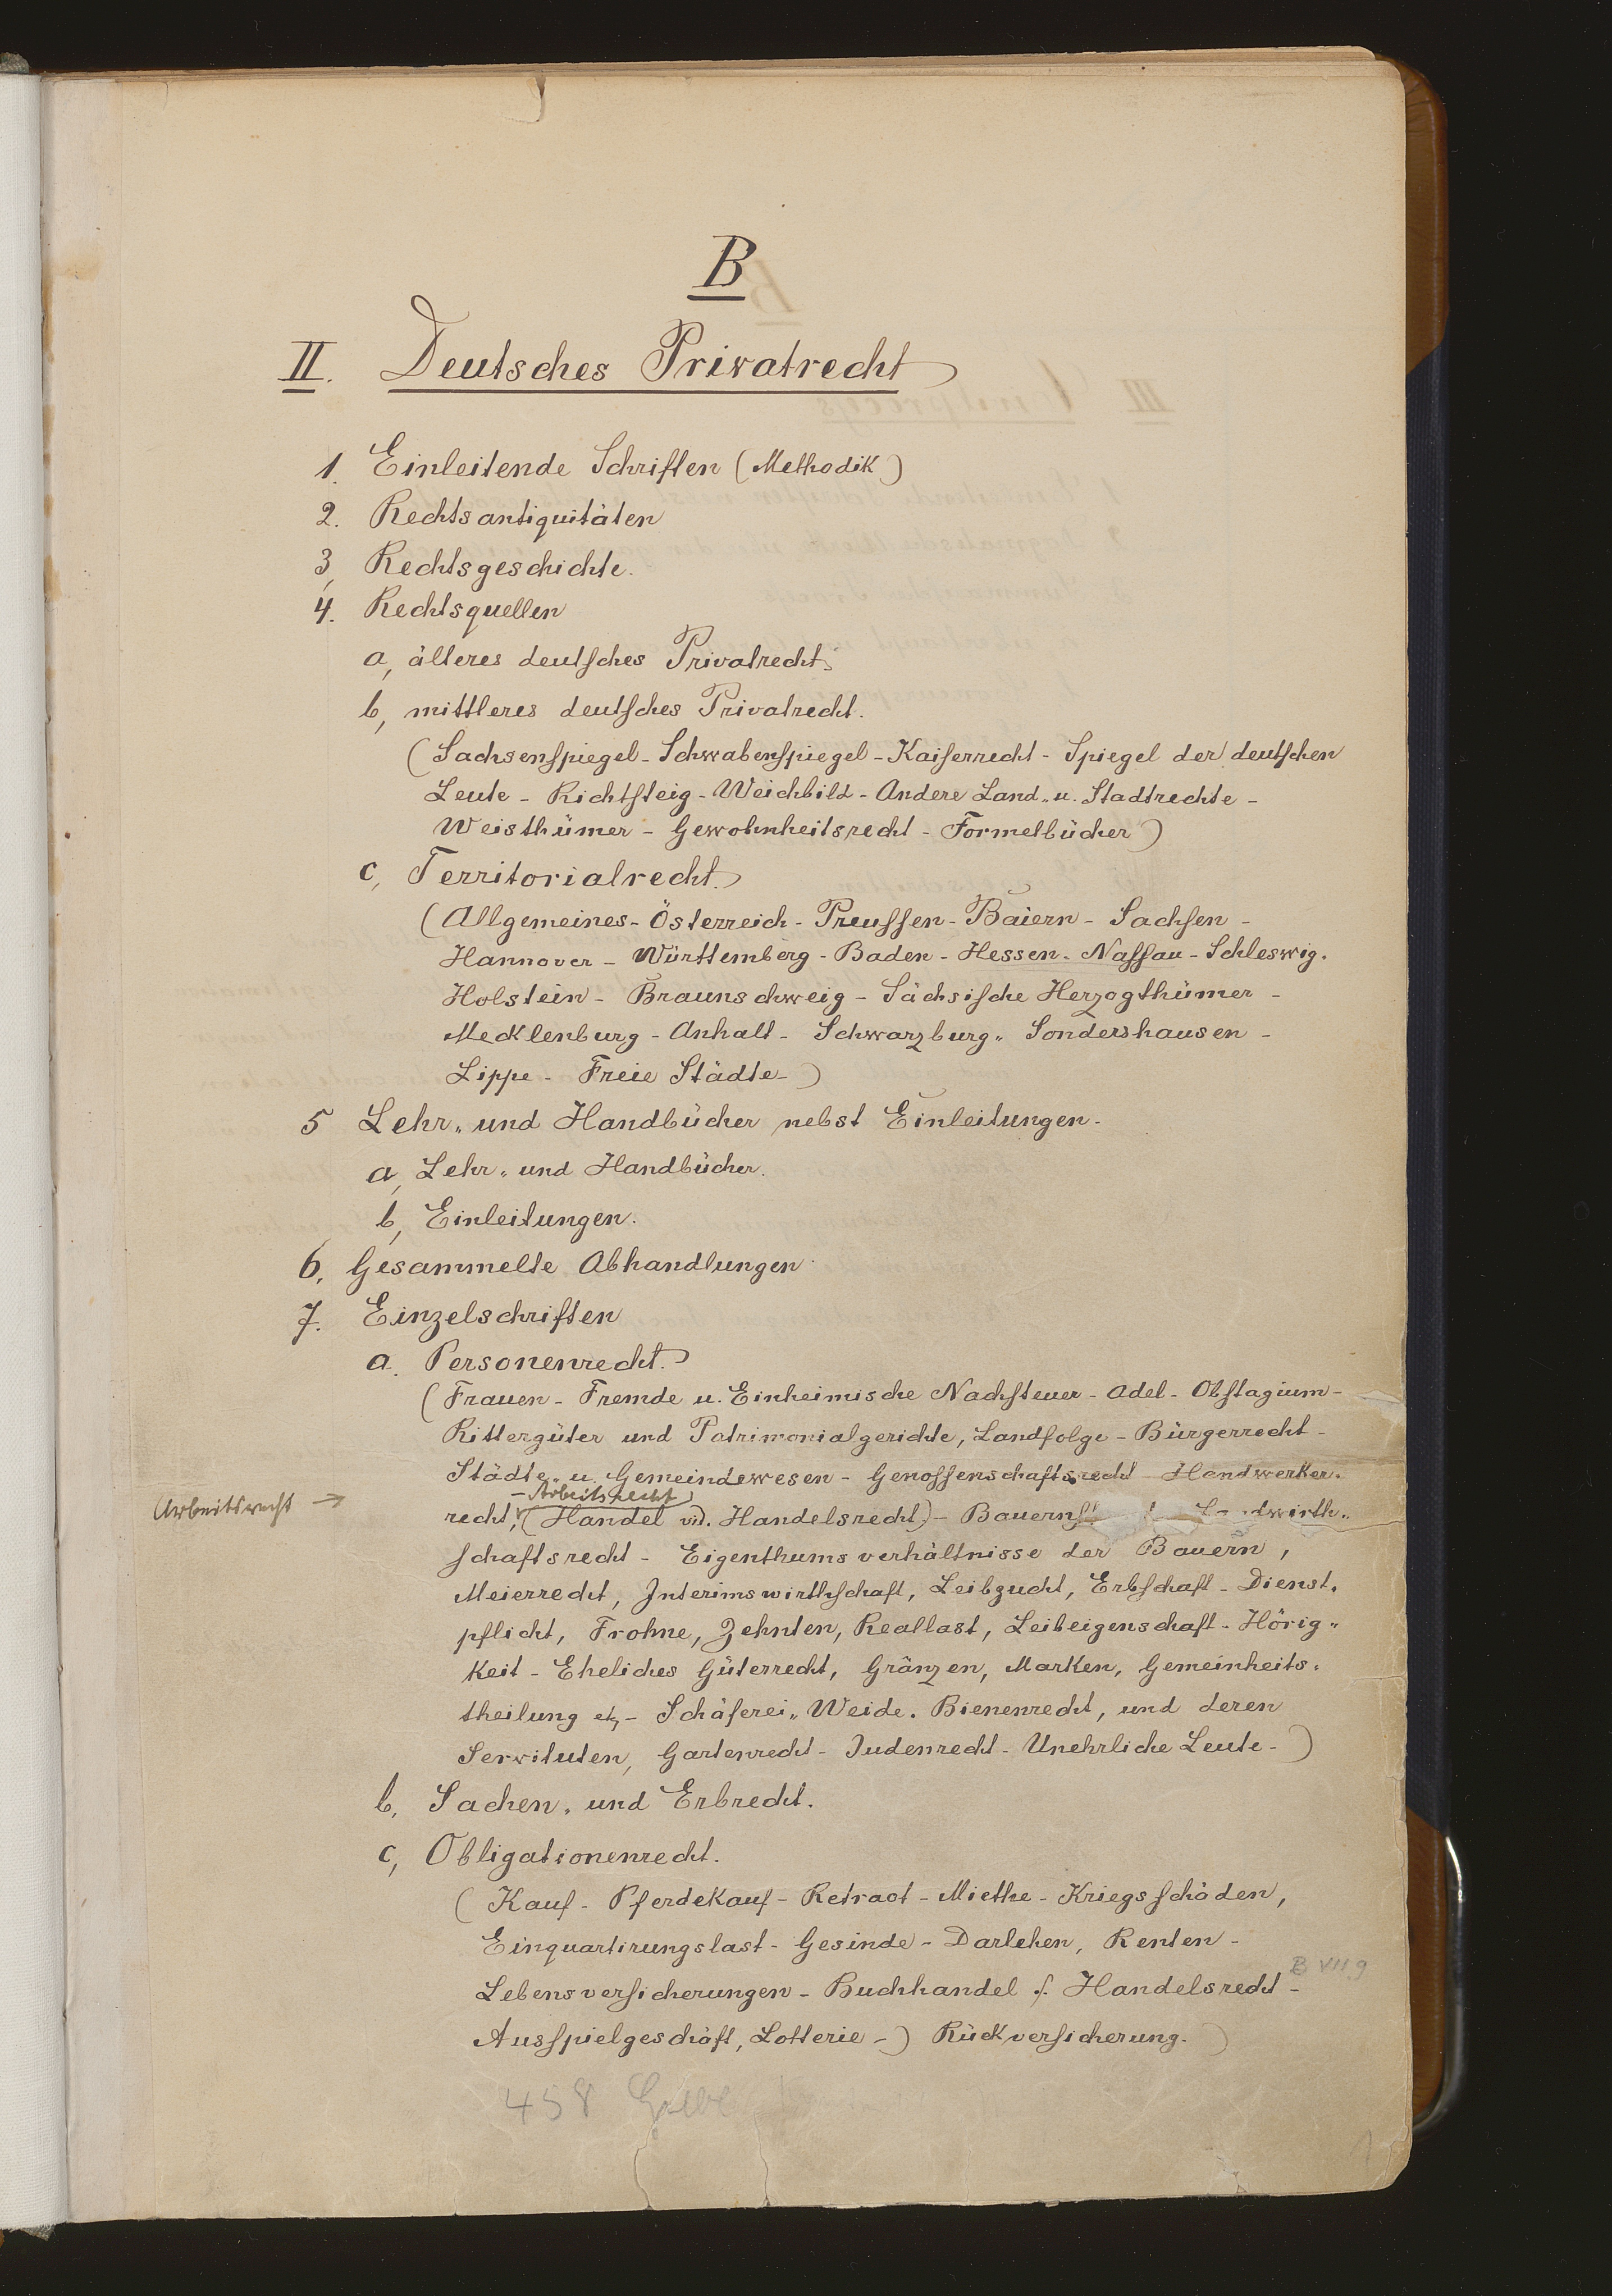 B
II. Deutsches Privatrecht
1. Einleitende Schriften (Methodik)
2. Rechtsantiquitäten
3, Rechtsgeschichte.
4. Rechtsquellen
a, älteres deutsches Privatrecht.
b, mittleres deutsches Privatrecht.
(Sachsenspiegel - Schwabenspiegel - Kaiserrecht - Spiegel der deutschen
Leute - Richtsteig - Weichbild - Andere Land- u. Stadtrechte -
Weisthümer - Gewohnheitsrecht - Formelbücher)
c, Territorialrecht.
(Allgemeines - Österreich - Preussen - Baiern - Sachsen -
Hannover - Württemberg - Baden - Hessen-Nassau - Schleswig-
Holstein - Braunschweig - Sächsische Herzogthümer -
Mecklenburg - Anhalt - Schwarzburg-Sondershausen -
Lippe - Freie Städte -)
5 Lehr- und Handbücher nebst Einleitungen.
a, Lehr- und Handbücher.
b, Einleitungen.
6. Gesammelte Abhandlungen.
7. Einzelschriften
a. Personenrecht.
(Frauen - Fremde u. Einheimische Nachsteuer - Adel - Obstagium -
Rittergüter und Patrimonialgerichte, Landfolge - Bürgerrecht -
Städte- u. Gemeindewesen - Genossenschaftsrecht - Handwerker-
- Arbeitsrecht
Arbeitsrecht →
recht, (Handel vid. Handelsrecht) - Bauernst
schaftsrecht - Eigenthumsverhältnisse der Bauern,
Meierrecht, Interimswirthschaft, Leibzucht, Erbschaft - Dienst-
pflicht, Frohne, Zehnten, Reallast, Leibeigenschaft - Hörig-
keit - Eheliches Güterrecht, Gränzen, Marken, Gemeinheits-
theilung etz - Schäferei- Weide- Bienenrecht, und deren
Servituten, Gartenrecht - Judenrecht - Unehrliche Leute -)
b. Sachen- und Erbrecht.
c, Obligationenrecht.
(Kauf - Pferdekauf - Retract - Miethe - Kriegsschäden,
Einquartirungslast - Gesinde - Darlehen, Renten -
B VII 9
Lebensversicherungen - Buchhandel s. Handelsrecht -
Ausspielgeschäft, Lotterie -) Rückversicherung.)
458